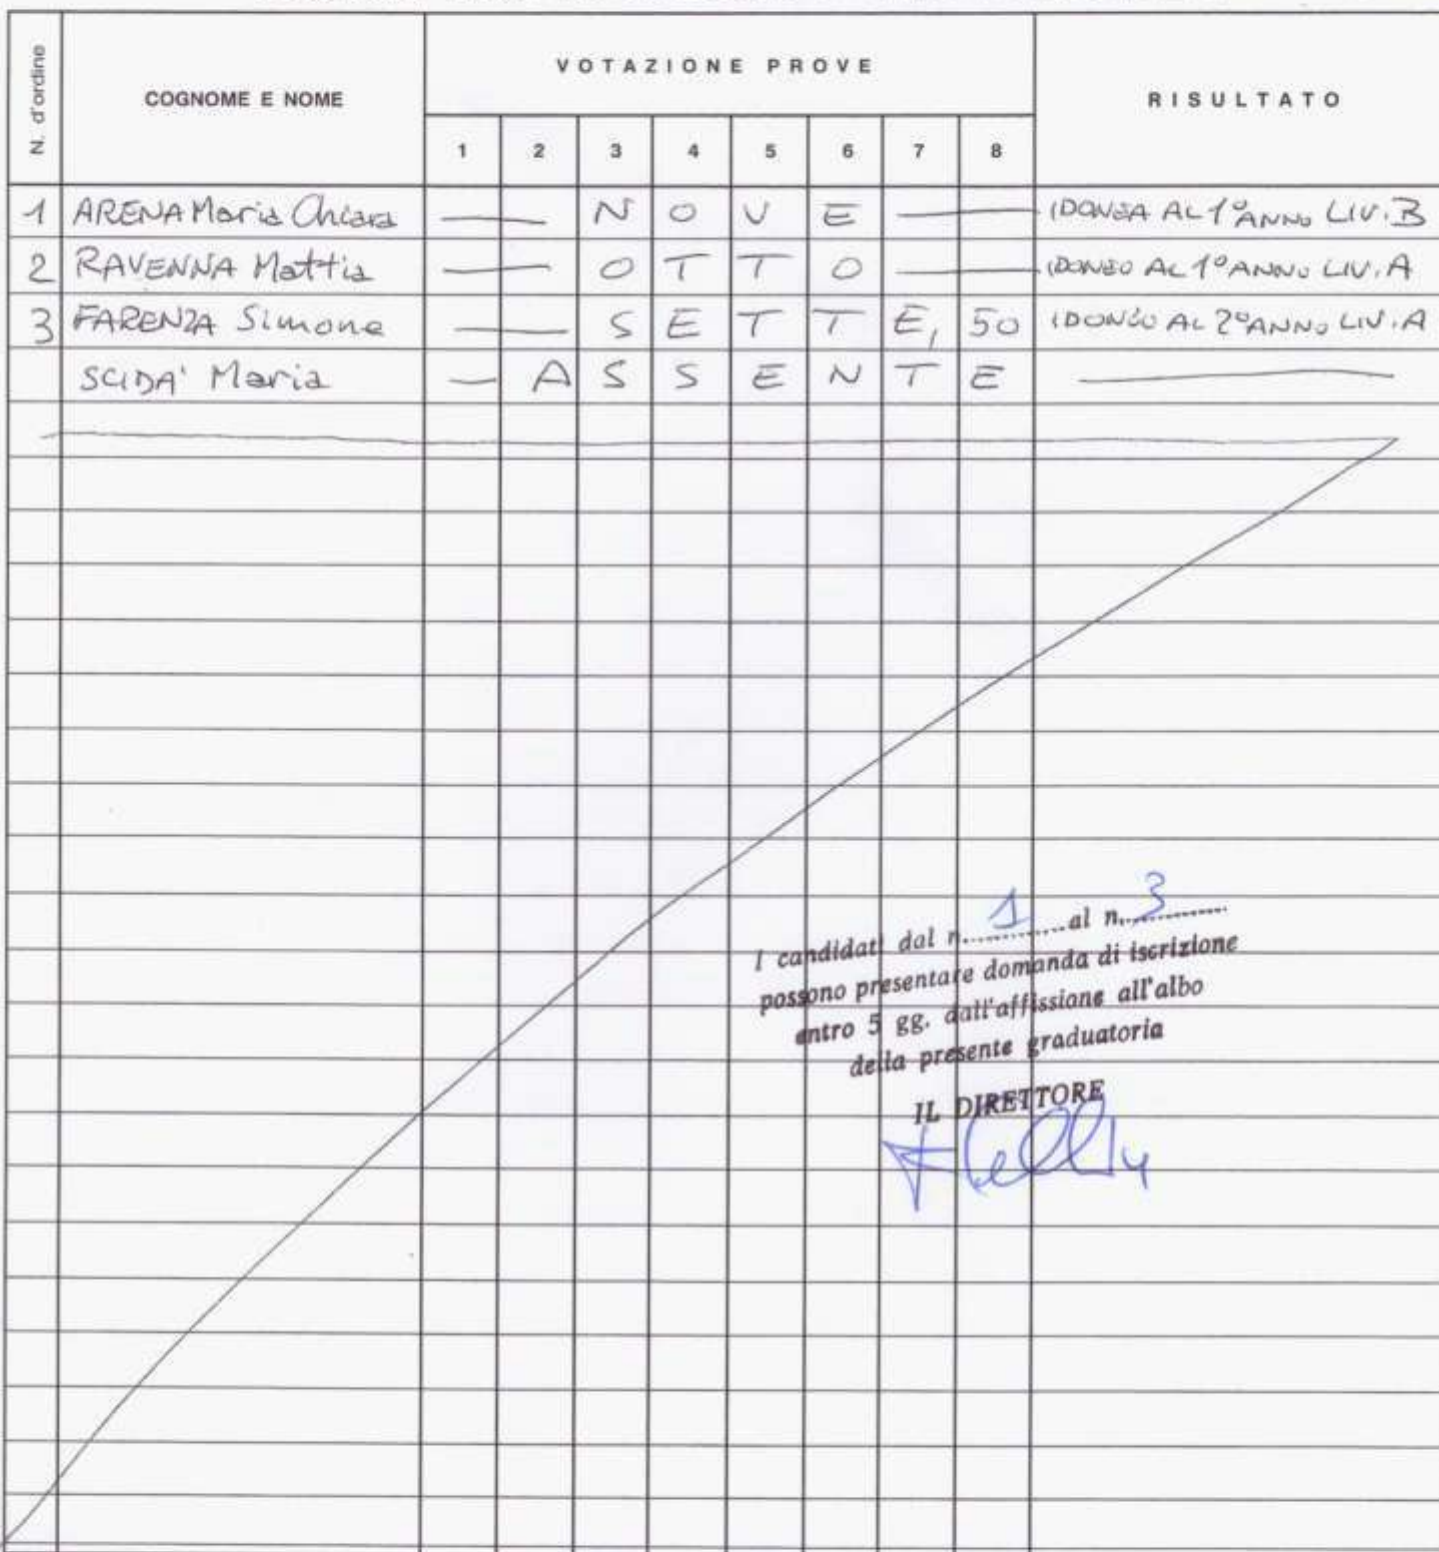 N. d'ordine
COGNOME E NOME
VOTAZIONE PROVE
RISULTATO
1 2 3 4 5 6 7 8
1 ARENA Maria Chiara — — N O V E — — IDONEA AL 1° ANNO LIV. B
2 RAVENNA Mattia — — O T T O — — IDONEO AL 1° ANNO LIV. A
3 FARENZA Simone — — S E T T E, 50 IDONEO AL 2° ANNO LIV. A
SCIDA' Maria — A S S E N T E —
I candidati dal n. 1 al n. 3
possono presentare domanda di iscrizione
entro 5 gg. dall'affissione all'albo
della presente graduatoria
IL DIRETTORE